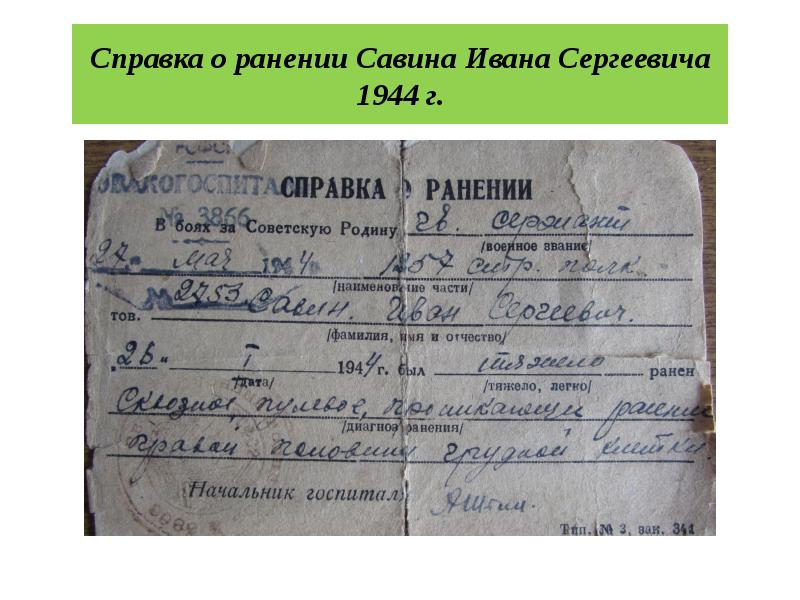 Справка о ранении Савина Ивана Сергеевича
1944 г.
ЭВАКОГОСПИТА
№ 3866
СПРАВКА О РАНЕНИИ
В боях за Советскую Родину гв. сержант
/военное звание/
27. мая 1944 1257 стр. полк
/наименование части/
№ 2753
тов. Савин Иван Сергеевич.
/фамилия, имя и отчество/
"26" I 1944 г. был тяжело ранен
/дата/ /тяжело, легко/
Сквозное, пулевое, проникающее ранение
/диагноз ранения/
правой половины грудной клетки.
Начальник госпиталя
Тип. № 3, зак. 341